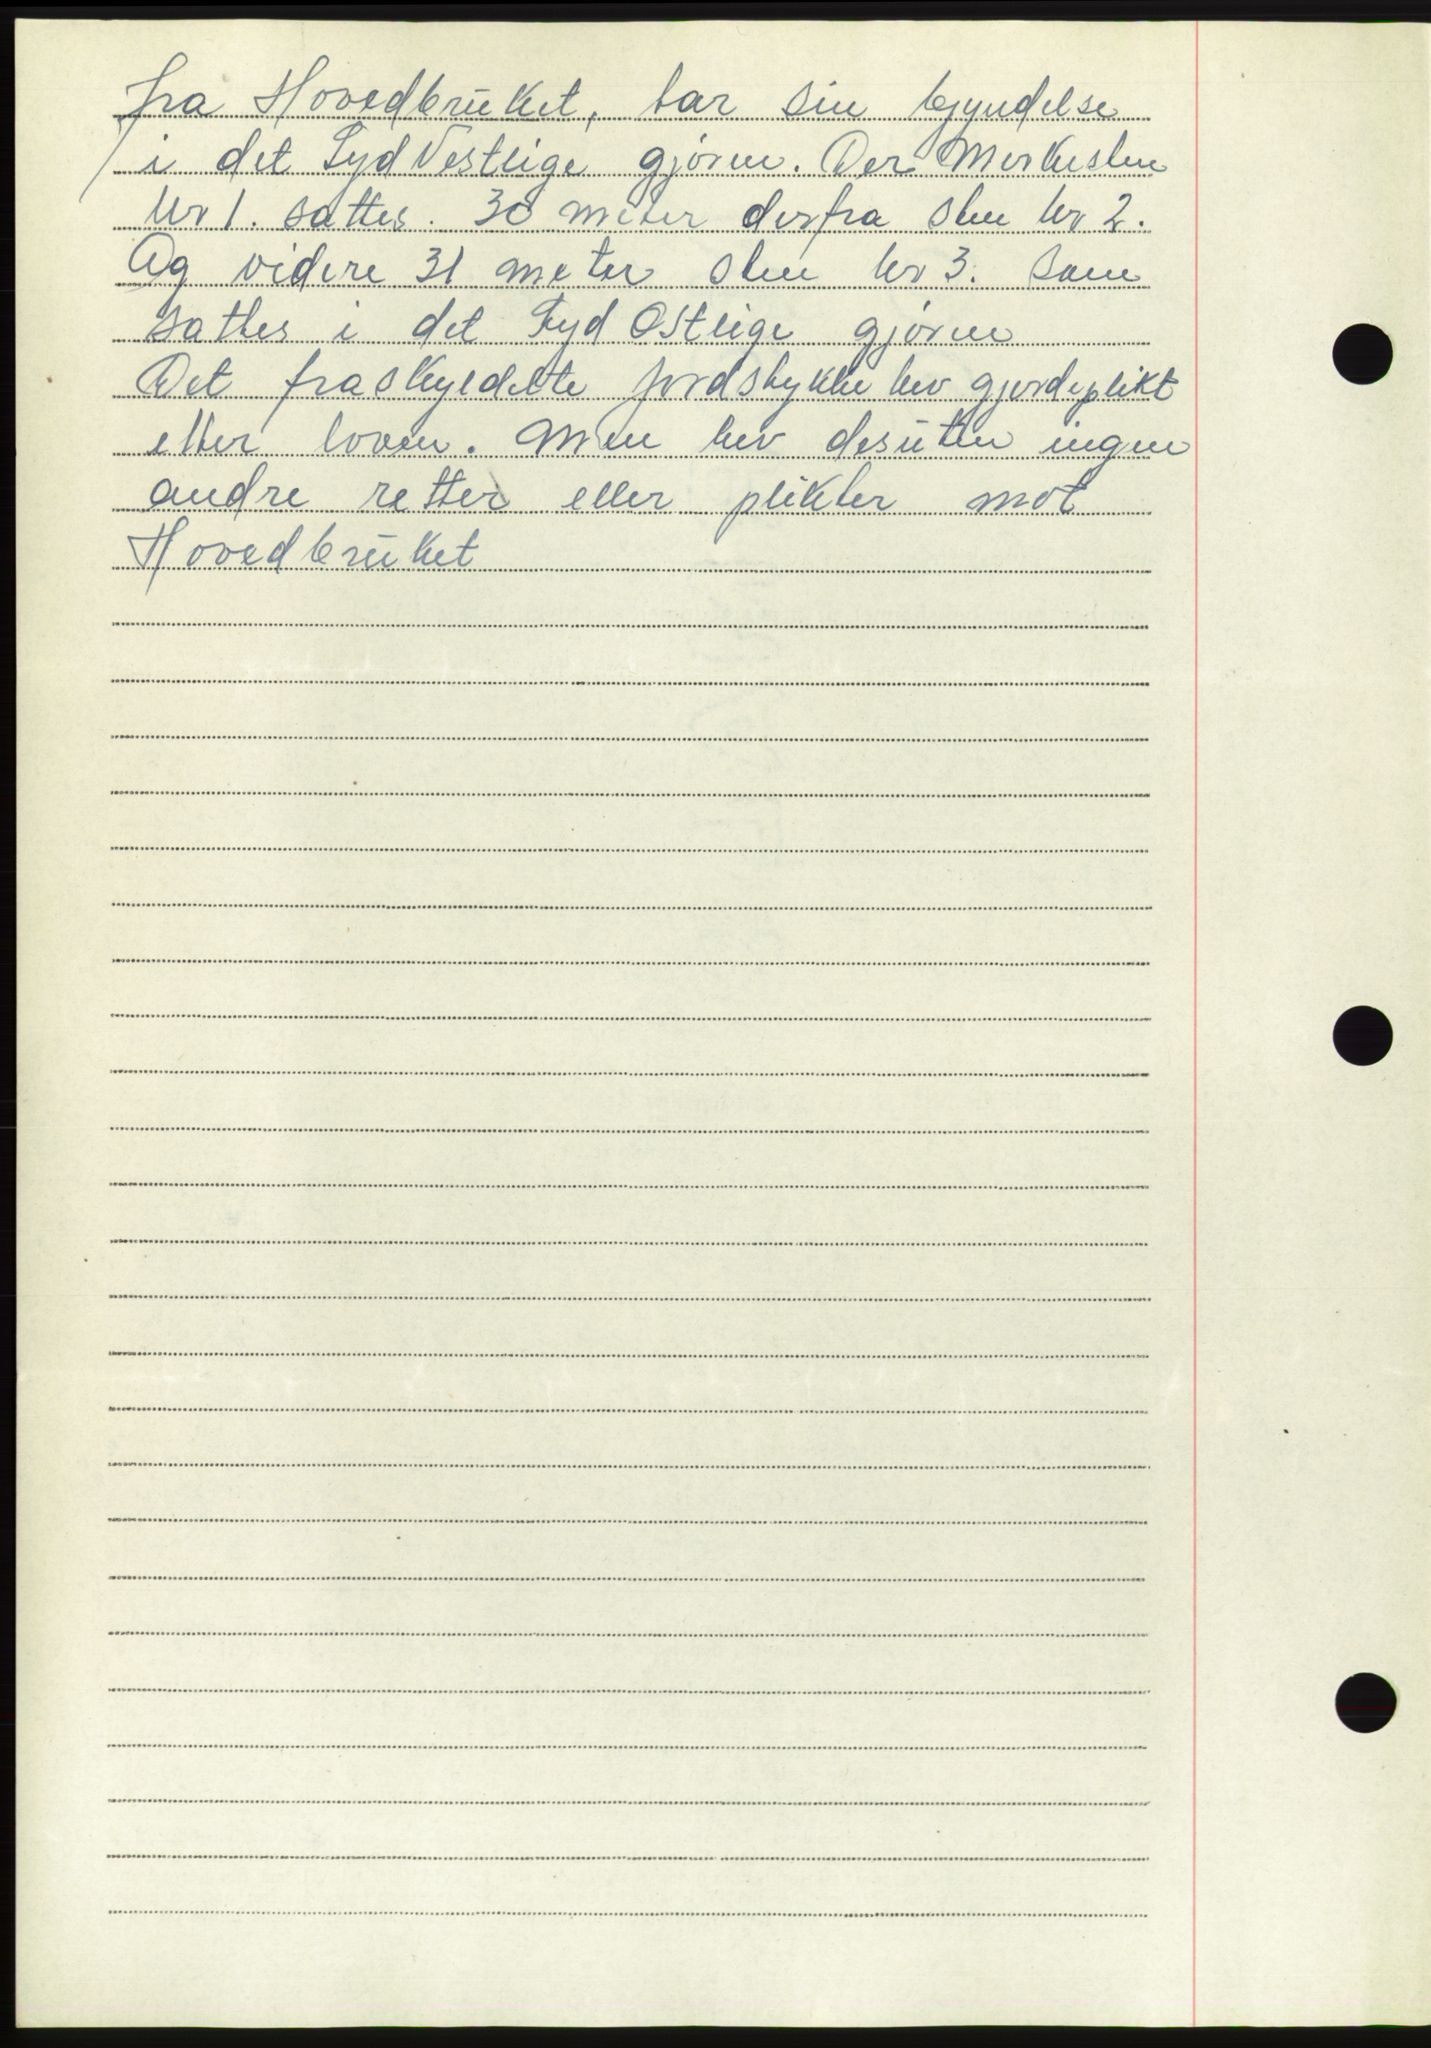 fra Hovedbrüket, tar sin bjyndelse
i det Syd Vestlige gjörne. Der Merkesten
Nr 1. sattes. 30 meter derfra sten Nr 2.
Og videre 31 meter sten Nr 3. som
sattes i det Syd Ostlige gjörne
Det fraskyldette jordstykke hev gjerdeplikt
etter loven. Men hev desüten ingen
andre retter eller plikter mot
Hovedbrüket